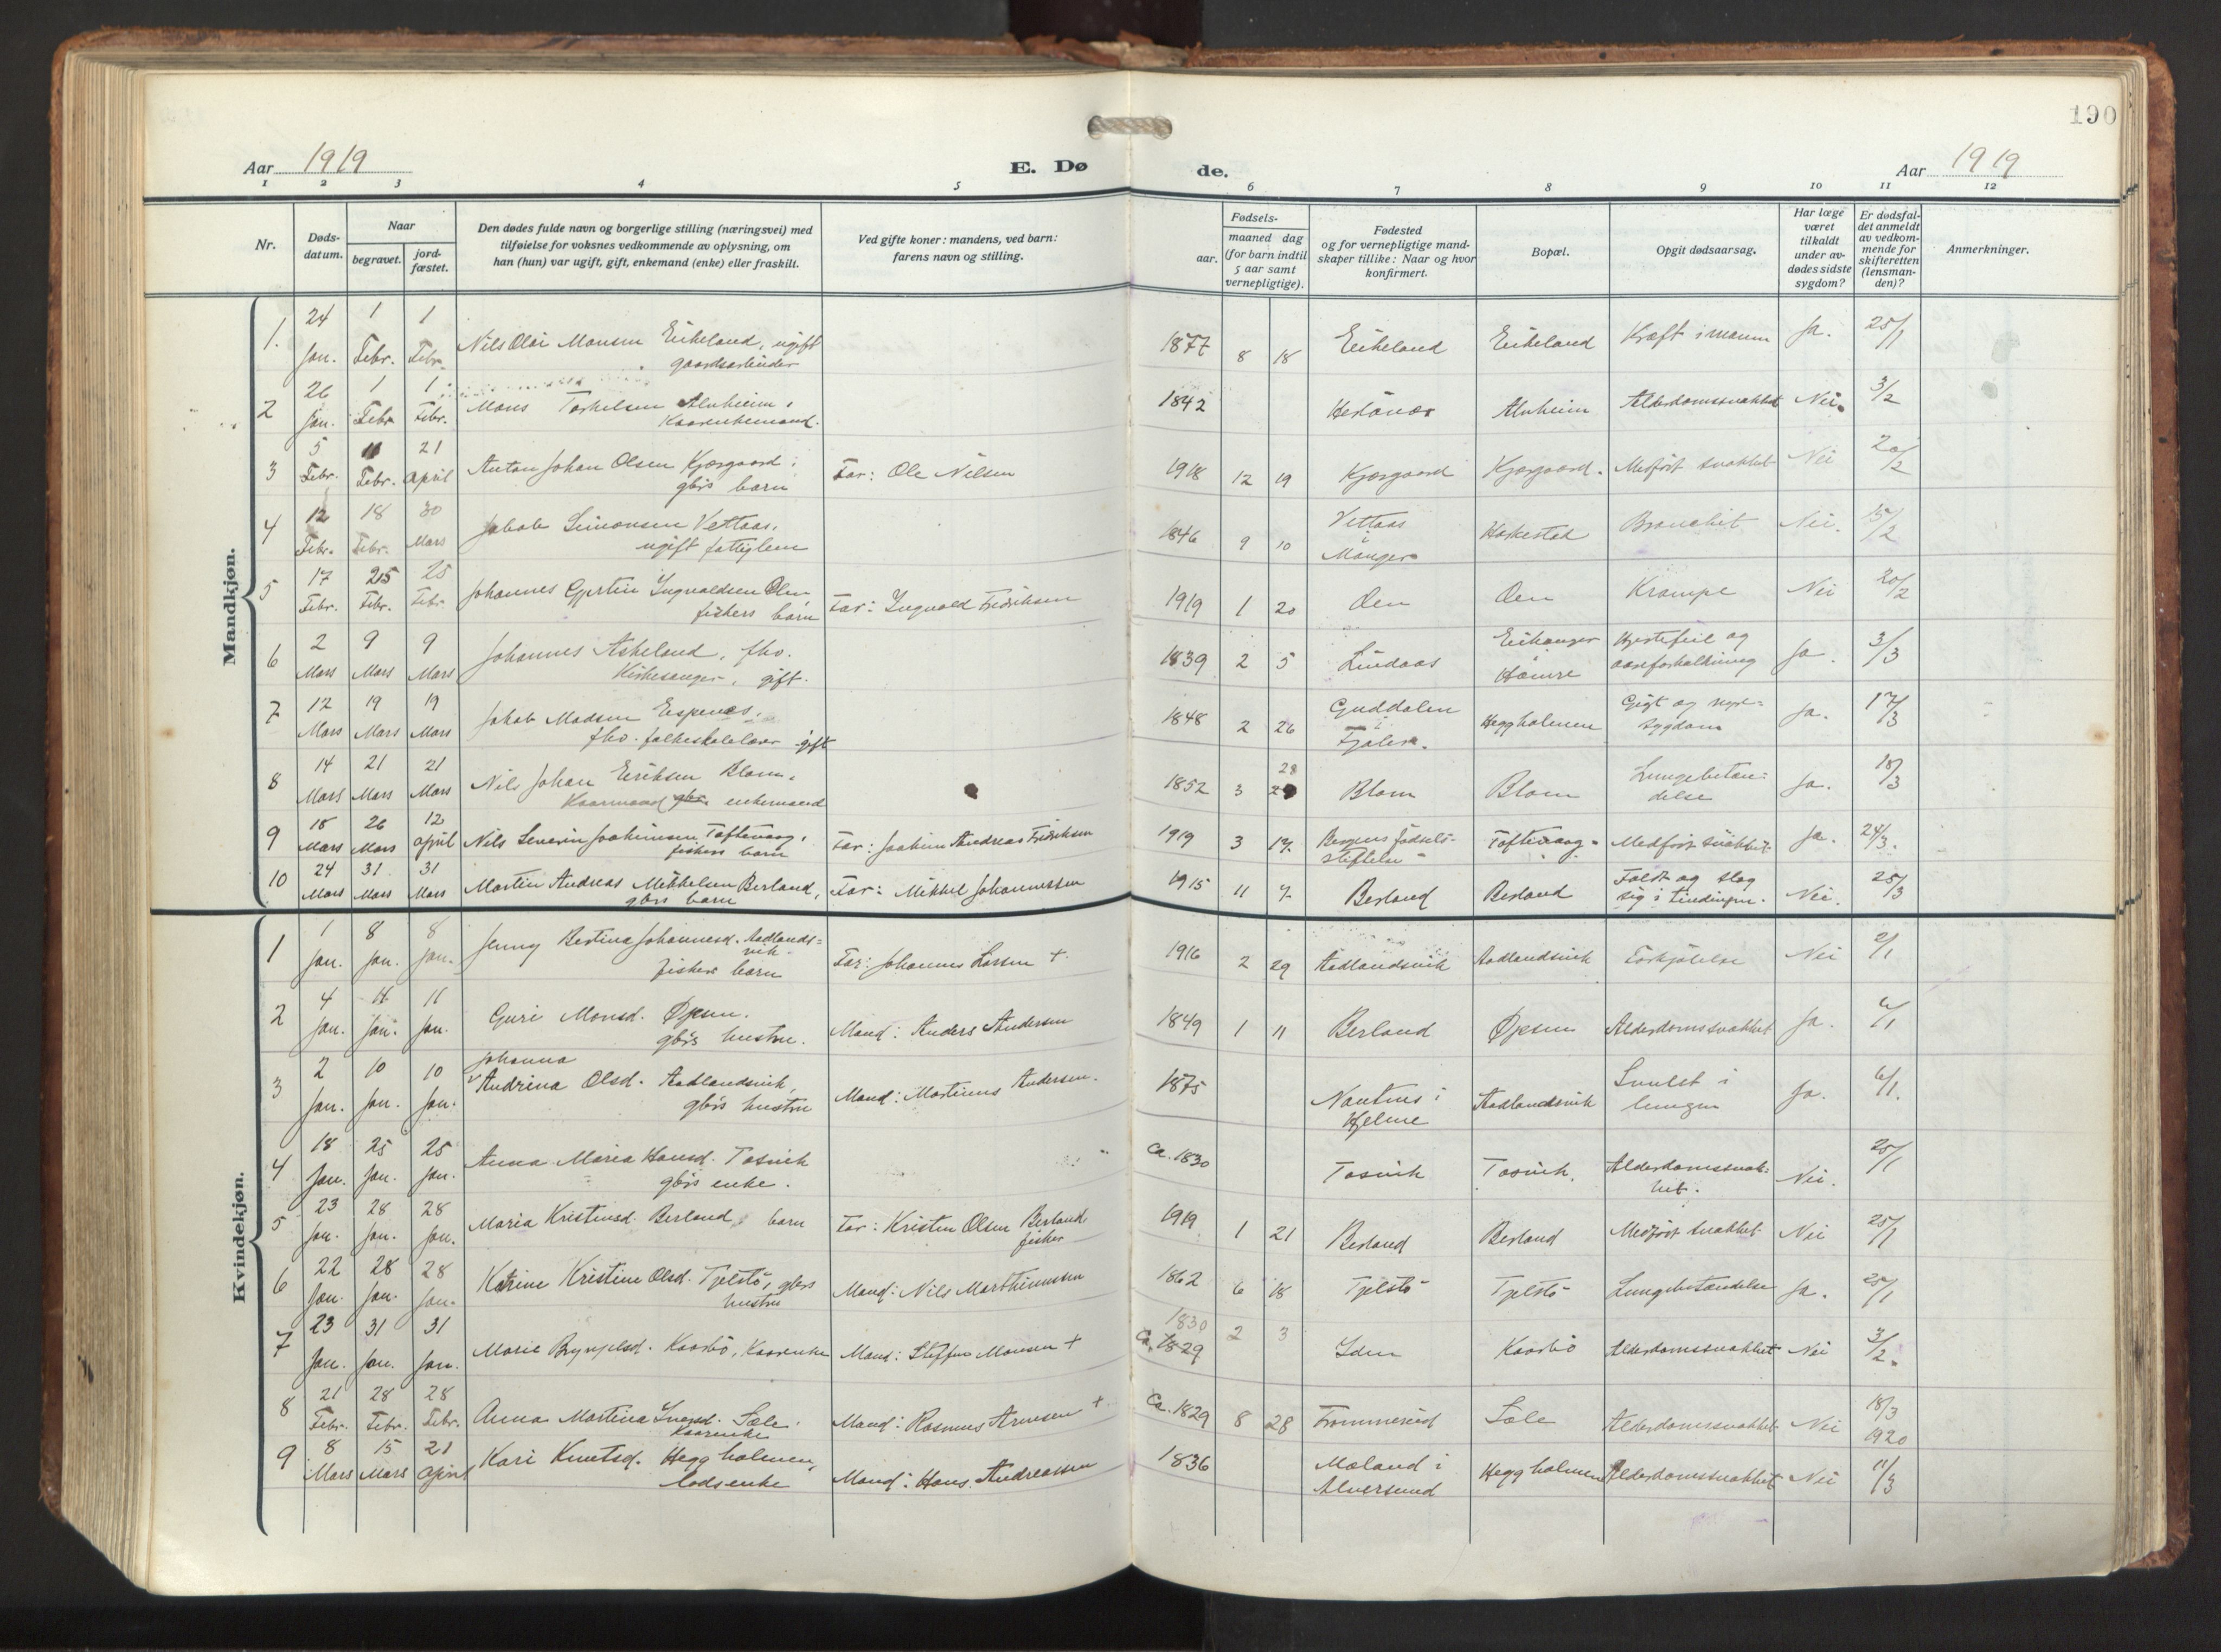 190
Aar 1919
E. Dø
de.
Aar 1919
1 2 3 4 5 6 7 8 9 10 11 12
Nr.
Døds-
datum.
Naar
begravet.
jord-
fæstet.
Den dødes fulde navn og borgerlige stilling (næringsvei) med
tilføielse for voksnes vedkommende av oplysning, om
han (hun) var ugift, gift, enkemand (enke) eller fraskilt.
Ved gifte koner: mandens, ved barn:
farens navn og stilling.
Fødsels-
aar.
maaned dag
(for barn indtil
5 aar samt
vernepligtige).
Fødested
og for vernepligtige mand-
skaper tillike: Naar og hvor
konfirmert.
Bopæl.
Opgit dødsaarsag.
Har læge
været
tilkaldt
under av-
dødes sidste
sygdom?
Er dødsfal-
det anmeldt
av vedkom-
mende for
skifteretten
(lensman-
den)?
Anmerkninger.
Mandkjøn.
1. 24 Jan. 1 Febr. 1 Febr. Nils Olai Monsen Eikeland, ugift
gaardsarbeider 1877 8 18 Eikeland Eikeland Kræft i maven Ja. 25/1
2 26 Jan. 1 Febr. 1 Febr. Mons Torkelsen Alvheim,
Kaarenkemand. 1842 Alvheim Alderdomssvakhet Nei. 3/2
3 5 Febr. 11 Febr. 21 April Anton Johan Olsen Kjærgaard,
gbrs barn Far: Ole Nilsen 1918 12 19 Kjærgaard Kjærgaard. Medfødt svakhet Nei 20/2
4 12 Febr. 18 Febr. 30 Mars Jakob Simonsen Vettaas,
ugift fattiglem 1846 9 10 Vettaas
i
Manger Haukestad Bronchit Nei. 15/2
5 17 Febr. 25 Febr. 25 Febr. Johannes Gjertin Ingvaldsen Øen
fiskers barn Far: Ingvald Fredriksen 1919 1 20 Øen Øen Krampe Nei 20/2
6 2 Mars 9 Mars 9 Mars Johannes Askeland, fho.
Kirkesanger, gift. 1839 2 5 Lindaas Eikanger
Hamre Hjertefeil og
aareforkalkning Ja. 3/3
7 12 Mars 19 Mars 19 Mars Jakob Madsen Espenes,
fho. folkeskolelærer gift 1848 2 26 Guddalen
i
Fjaler. Heggholmen Gigt og nyre-
sygdom Ja. 17/3
8 14 Mars 21 Mars 21 Mars Nils Johan Eriksen Blom,
Kaarmand gbr. enkemand 1852 3 28 Blom Blom Lungebetæn-
delse Ja. 18/3
9 18 Mars 26 Mars 12 April Nils Severin Joakimsen Toftevaag,
fiskers barn Far: Joakim Andreas Fredriksen 1919 3 17. Bergens fødsels-
stiftelse Toftevaag Medfødt svakhet Ja. 24/3.
10 24 Mars 31 Mars 31 Mars Martin Andreas Mikkelsen Berland,
gbrs barn Far: Mikkel Johannessen 1915 11 7. Berland Berland Faldt og slog
sig i tindingen. Nei. 25/3
Kvindekjøn.
1 1 Jan. 8 Jan. 8 Jan. Jenny Bertina Johannesd. Aadlands-
vik.
fiskers barn Far: Johannes Larsen + 1916 2 29 Aadlandsvik Aadlandsvik Forkjølelse Nei 2/1
2 4 Jan. 11 Jan. 11 Jan. Guri Monsd. Øpsen.
gbrs hustru. Mand: Anders Andersen 1849 1 11 Berland Øpsen Alderdomssvakhet Ja. 6/1
3 2 Jan. 10 Jan. 10 Jan. Johanna
Andrina Olsd. Aadlandsvik,
gbrs hustru Mand: Martinus Andersen. 1875 Nautnes i
Hjelme Aadlandsvik Svulst i
lungen Ja. 6/1.
4 18 Jan. 25 Jan. 25 Jan. Anna Maria Hansd. Tosvik
gbrs enke. ca. 1830 Tosvik Tosvik. Alderdomssvak-
het. Nei. 20/1
5 23 Jan. 28 Jan. 28 Jan. Maria Kristensd. Berland, barn Far: Kristen Olsen Berland
fisker 1919 1 21 Berland Berland Medfødt svakhet Nei 25/1
6 22 Jan. 28 Jan. 28 Jan. Katrine Kristine Olsd. Tjelstø, gbrs
hustru Mand: Nils Marthinussen 1862 6 18 Tjelstø Tjelstø Lungebetændelse Ja. 25/1
7 23 Jan. 31 Jan. 31 Jan. Marie Brynjelsd. Kaarbø, Kaarenke Mand: Steffen Monsen + 1830
ca. 1829 2 3 Iden Kaarbø Alderdomssvakhet Nei 3/2.
8 21 Febr. 28 Febr. 28 Febr. Anna Martina Ivarsd. Sæle.
Kaarenke Mand: Rasmus Arnesen + ca. 1829 8 28 Sæle Alderdomssvakhet Nei 18/3
1920
9 8 Mars 15 Mars 21 April Kari Knutsd. Heggholmen,
losenke Mand: Hans Andreassen 1836 Moland i
Alversund Heggholmen Alderdomssvakhet Nei 11/3